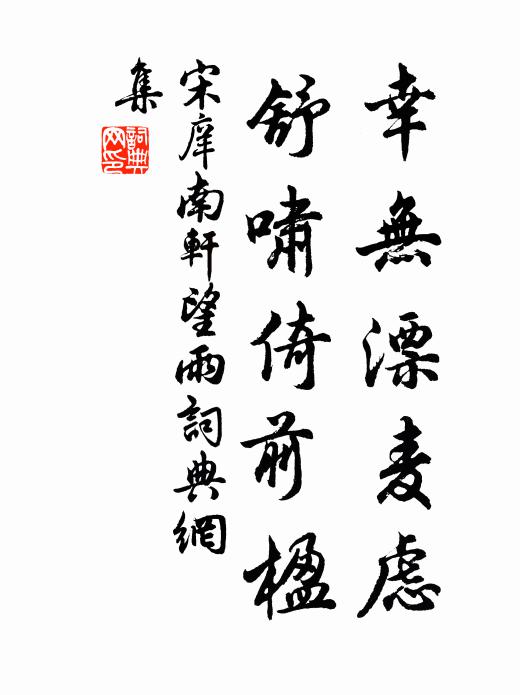 幸無漂麦慮
舒嘯倚前楹
宋庠南軒望雨詞典網
集
詞典網印